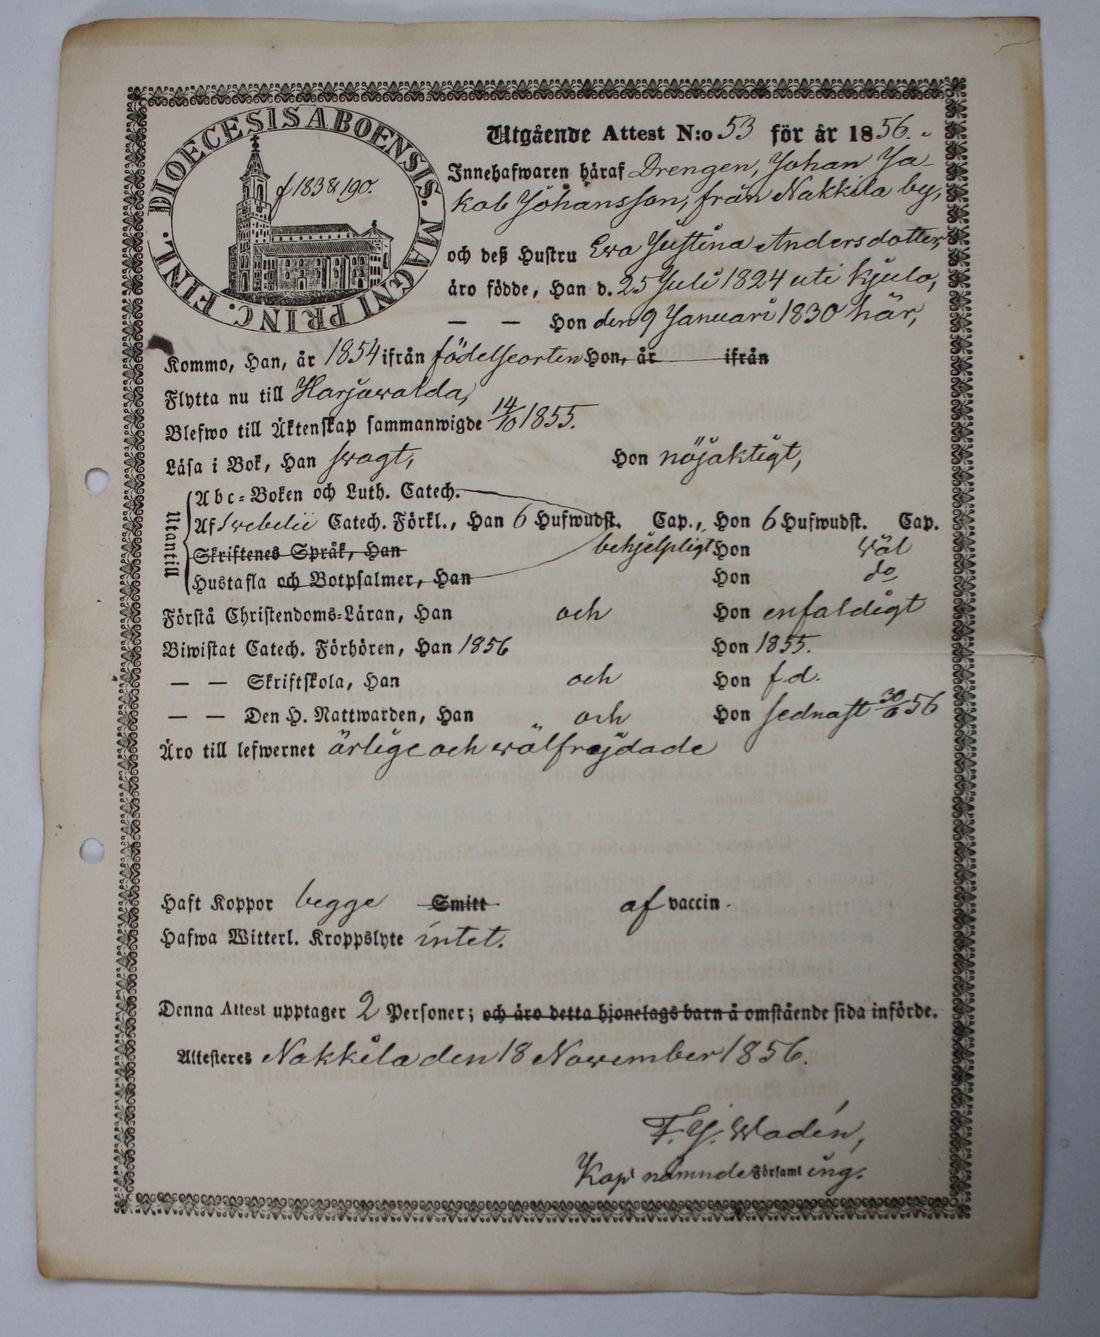 FINL. DIOECESIS ABOENSIS. MAGNI PRINC.
f 1838 190.
Utgående Attest N:o 53 för år 1856.
Innehafwaren häraf Drengen, Johan Ja
kob Johansson, från Nakkila by,
och deß Hustru Eva Justina Andersdotter,
äro födde, Han d. 25 Juli 1824 uti Kjulo,
— — Hon den 9 Januari 1830 här,
Kommo, Han, år 1854 ifrån födelseorten Hon, år ifrån
Flytta nu till Harjawalda,
Blefwo till Äktenskap sammanwigde 14/10 1855.
Läsa i Bok, Han swagt, Hon nöjaktigt,
Utantill
Abc-Boken och Luth. Catech.
Af Swebelii Catech. Förkl., Han 6 Hufwudst. Cap., Hon 6 Hufwudst. Cap.
Skriftenes Språk, Han behjelpligt Hon wäl
Hustafla och Botpsalmer, Han Hon do
Förstå Christendoms-Läran, Han och Hon enfaldigt
Biwistat Catech. Förhören, Han 1856 Hon 1855.
— — Skriftskola, Han och Hon f.d.
— — Den H. Nattwarden, Han " och Hon sednast 30/6 56
Äro till lefwernet ärlige och wälfrejdade
Haft Koppor begge Smitt af vaccin.
Hafwa Witterl. Kroppslyte intet.
Denna Attest upptager 2 Personer; och äro detta hjonelags barn å omstående sida införde.
Attesteres Nakkila den 18 November 1856.
F. J. Wadén,
Kap. nämnde Församl ing.